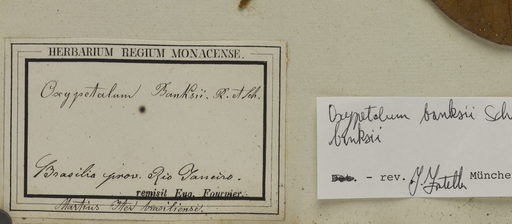 HERBARIUM REGIUM MONACENSE.
Oxypetalum Banksii. R. et Sch.
Brasilia prov. Rio Janeiro.
remisit Eug. Fournier.
Martius Iter brasiliense.
Oxypetalum banksii Sch
banksii
Det. - rev. Münche